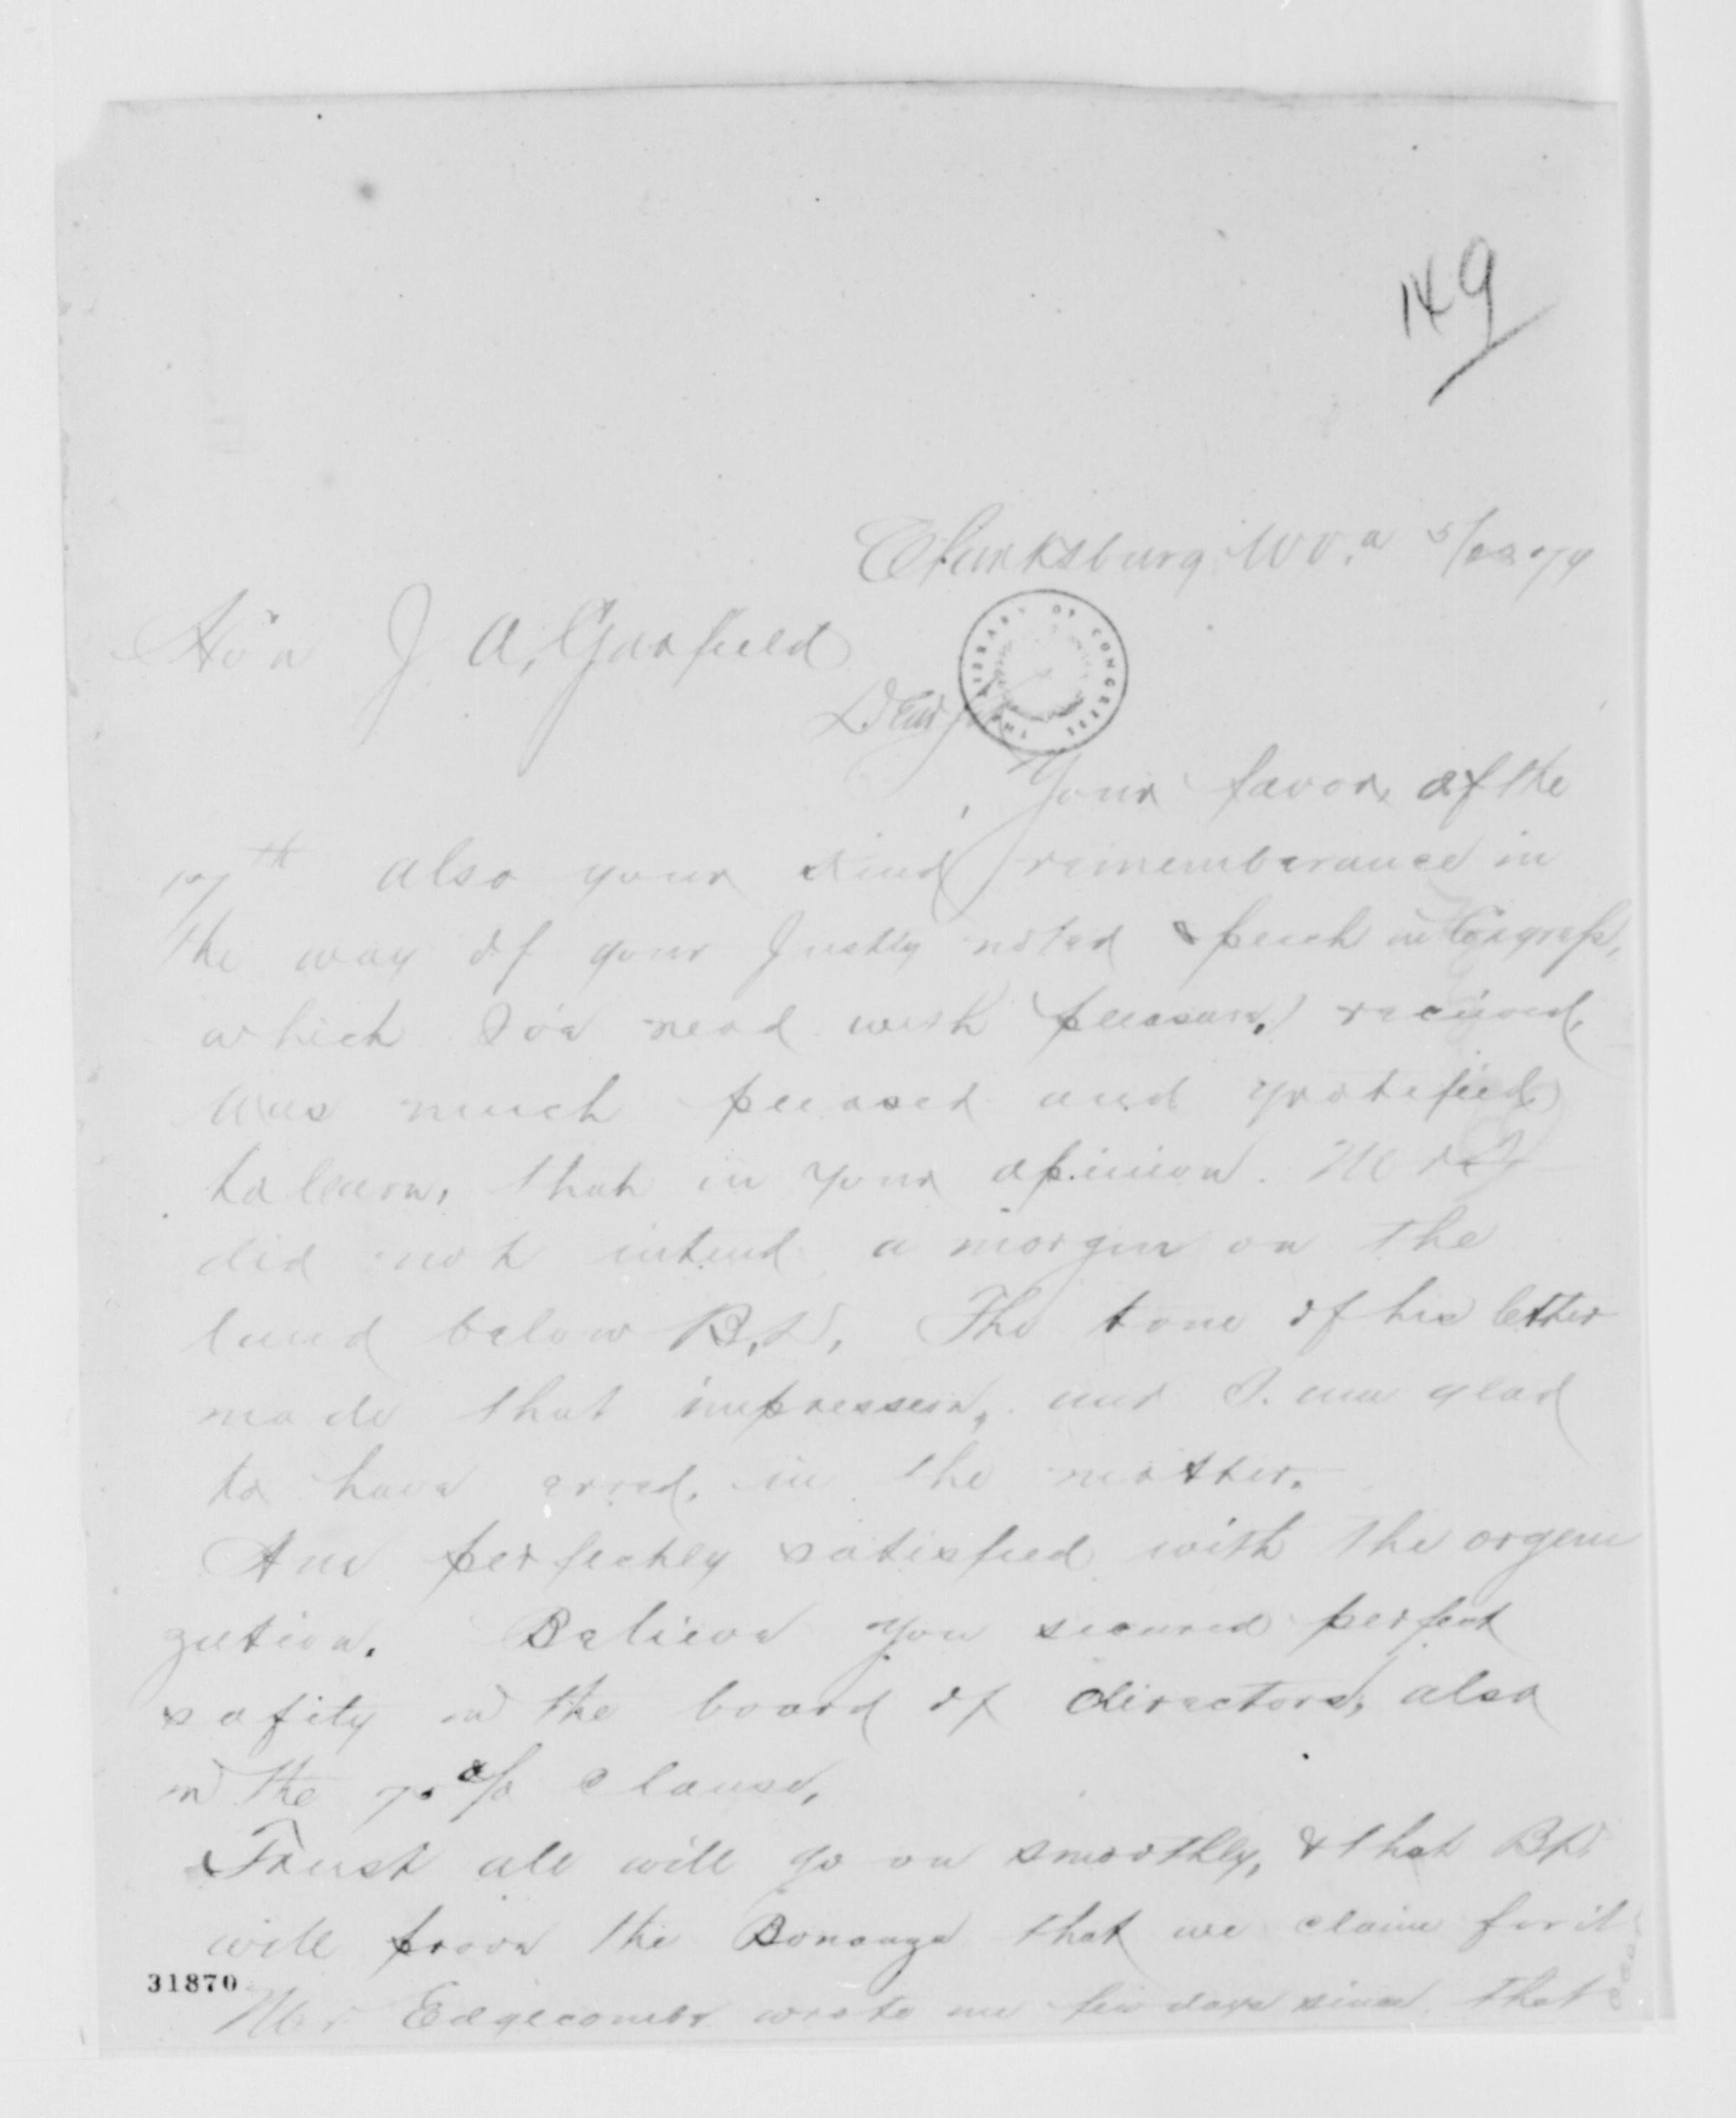 149
Clarksburg W.Va 5/22 79
Hon J. A. Garfield
THE LIBRARY OF CONGRESS
Dear Sir
Your favor, of the
17th also your kind rememberance in
the way of your Justly noted speech in Congress,
which I've read with pleasure, received,
was much pleased and gratified
to learn, that in your opinion. Mr
did not intend a margin on the
land below B.D. The tone of his letter
made that impression, and I. am glad
to have erred, in the matter.
Am perfectly satisfied with the organi
zation. Believe you secured perfect
safity in the board of directors, also
in the % clause,
Trust all will go on smoothly, & that BD.
will prove the Bonanza that we claim for it
31870
Mr Edgecombe wrote me few days since that